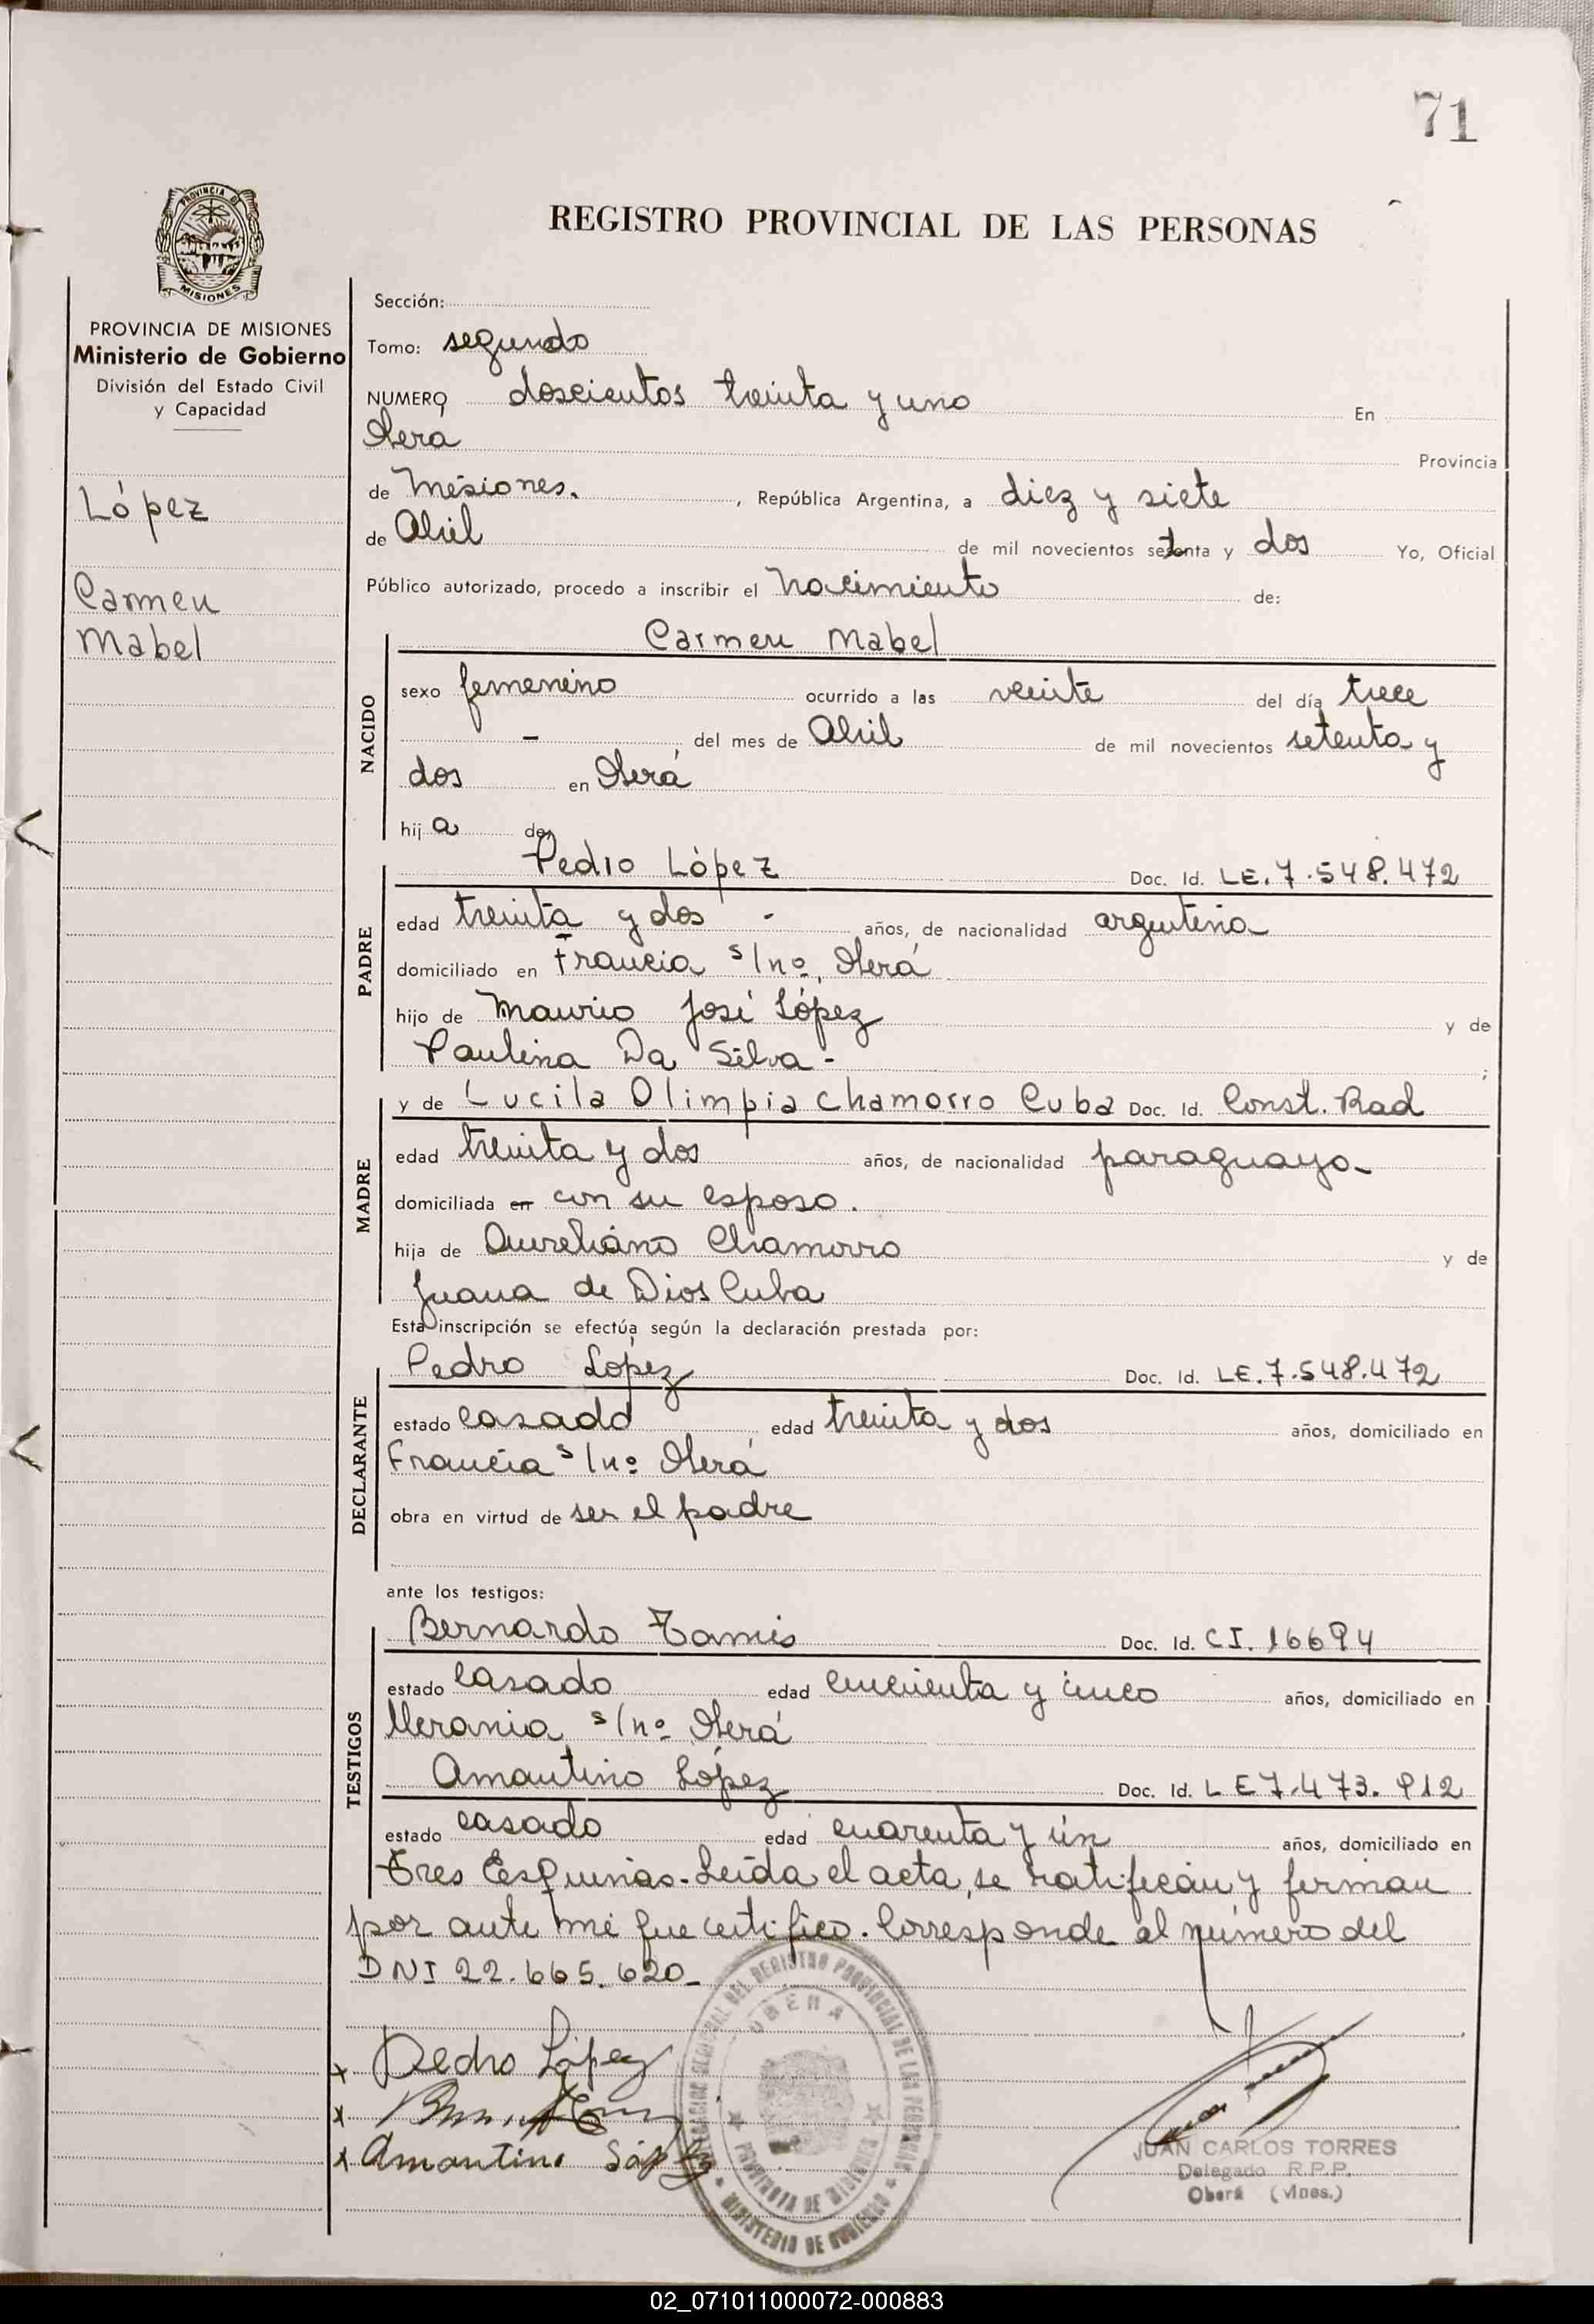 71
PROVINCIA DE
MISIONES
REGISTRO PROVINCIAL DE LAS PERSONAS
PROVINCIA DE MISIONES
Ministerio de Gobierno
División del Estado Civil
y Capacidad
López
Carmen
Mabel
Sección:
Tomo: segundo
NUMERO doscientos treinta y uno En
Oberá Provincia
de Misiones. , República Argentina, a diez y siete
de Abril de mil novecientos setenta y dos Yo, Oficial
Público autorizado, procedo a inscribir el nacimiento de:
Carmen Mabel
NACIDO
sexo femenino ocurrido a las veinte del día trece
- , del mes de Abril de mil novecientos setenta y
dos en Oberá
hij a de
PADRE
Pedro López Doc. Id. LE. 7.548.472
edad treinta y dos - años, de nacionalidad argentina
domiciliado en Francia s/nº, Oberá
hijo de Maurio José López y de
Paulina Da Silva - ;
MADRE
y de Lucila Olimpia Chamorro Cuba Doc. Id. Const. Rad
edad treinta y dos años, de nacionalidad paraguaya-
domiciliada en con su esposo.
hija de Aureliano Chamorro y de
Juana de Dios Cuba
Esta inscripción se efectúa según la declaración prestada por:
DECLARANTE
Pedro López Doc. Id. LE. 7.548.472
estado casado , edad treinta y dos años, domiciliado en
Francia s/nº Oberá
obra en virtud de ser el padre
ante los testigos:
TESTIGOS
Bernardo Tamis Doc. Id. CI. 16694
estado casado edad cincuenta y cinco años, domiciliado en
Ucrania s/nº Oberá
Amantino López Doc. Id. LE 7.473.912
estado casado edad cuarenta y ún años, domiciliado en
Tres Esquinas. Leída el acta, se ratifican y firman
por ante mí que certifico. Corresponde al número del
DNI 22.665.620-
x Pedro López
x
x Amantino López
REGISTRO PROVINCIAL DE LAS PERSONAS
OBERA
PROVINCIA DE MISIONES
MINISTERIO DE GOBIERNO
JUAN CARLOS TORRES
Delegado R.P.P.
Oberá (Mnes.)
02_071011000072-000883